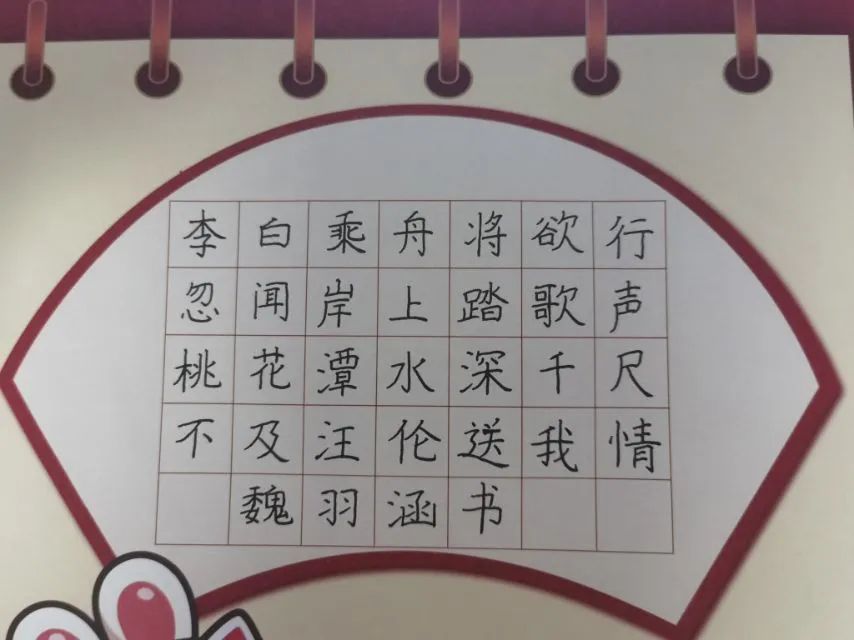 李白乘舟将欲行
忽闻岸上踏歌声
桃花潭水深千尺
不及汪伦送我情
魏羽涵书